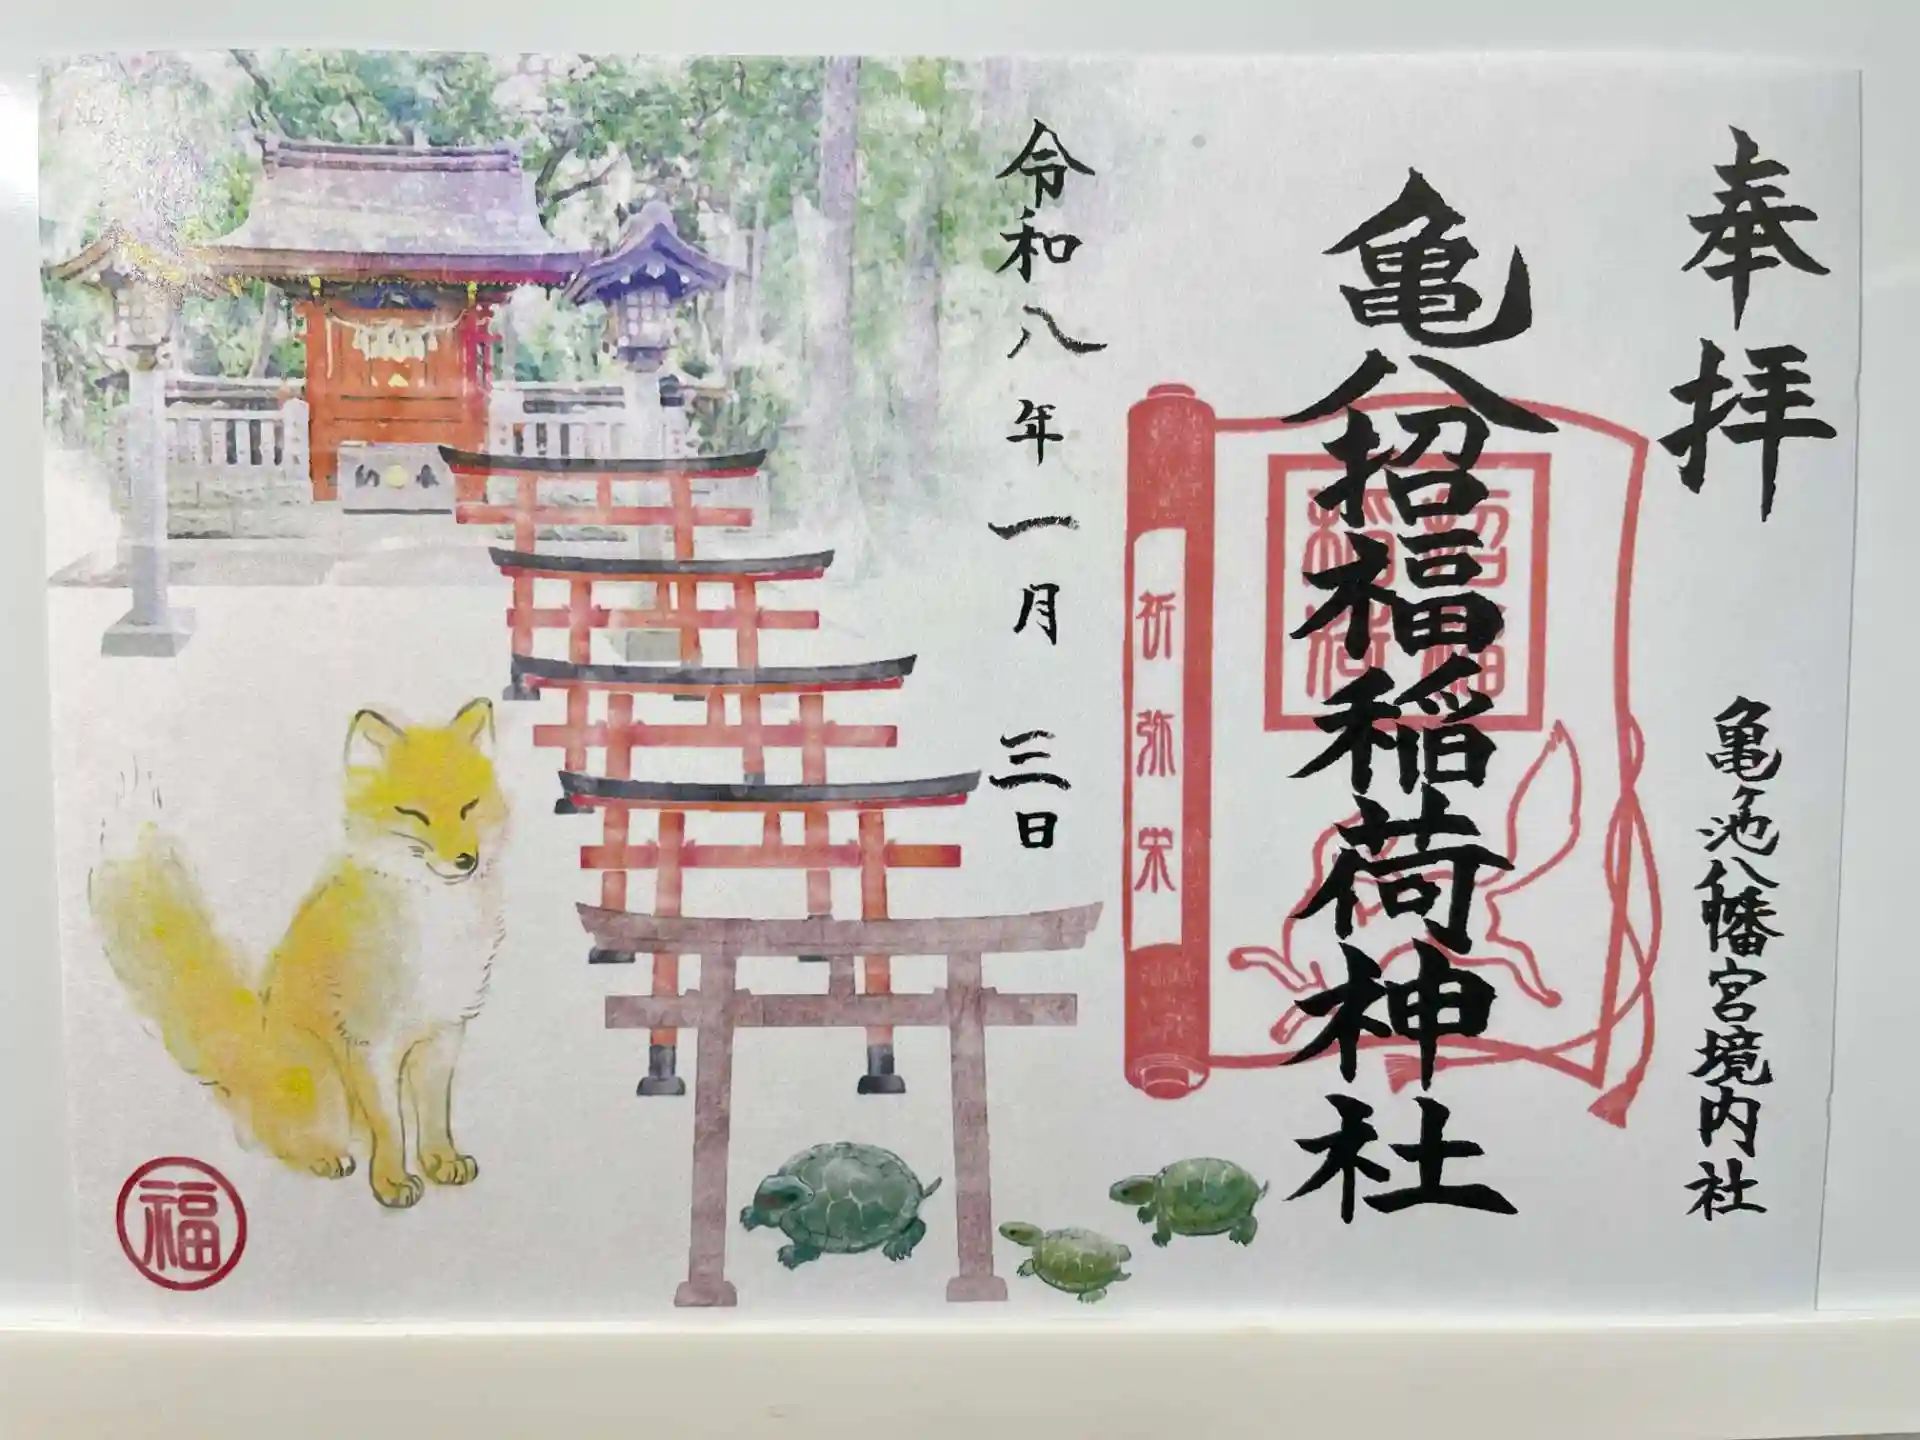 奉拝
亀ヶ池八幡宮境内社
亀八招福稲荷神社
招福
稲荷
祈弥栄
令和八年一月三日
福